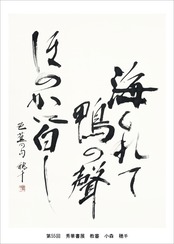 海くれて
鴨の聲
ほのかに白し
芭蕉の句 穂千
第55回 秀華書展 教書 小森 穂千